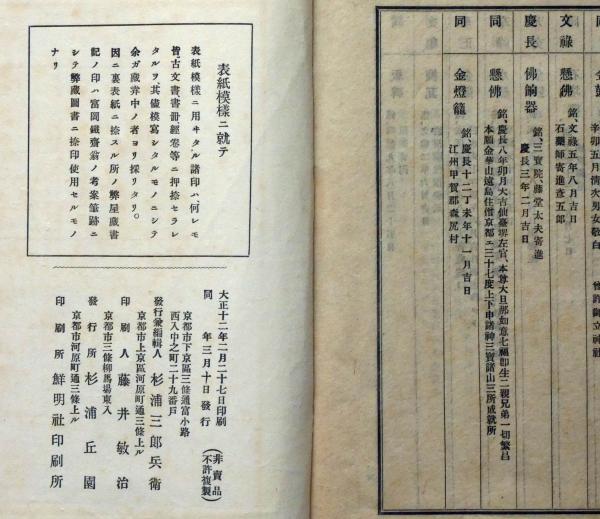 辛卯五月清次男女敬白
文祿 懸佛 銘、文祿五年八月吉日
石藥師寄進查五郎
慶長 佛餉器 銘、三寶院、藤堂太夫寄進
慶長三年二月吉日
同 懸佛 銘、慶長八年卯月大吉仙臺堺左官、本尊大旦那如意七福卽生二親兄弟一切繁昌
本願金華山遠島住僧京都ェ三十七度上下申諸神三寶諸山三所成就所
同 金燈籠 銘、慶長十二丁未年十一月吉日
江州甲賀郡森尻村
表紙模樣ニ就テ
表紙模樣ニ用ヰタル諸印ハ、何レモ
皆、古文書、書册、經卷等ニ押捺セラレ
タルヲ、其儘模寫シタルモノニシテ
余ガ藏弆中ノ者ヨリ採リタリ。
因ニ裏表紙ニ捺スル所ノ弊屋藏書
記ノ印ハ富岡鐵齋翁ノ考案筆跡ニ
シテ弊藏圖書ニ捺印使用セルモノ
ナリ
大正十二年二月二十七日印刷
同 年三月十日發行
(非賣品 不許複製)
京都市下京區三條通富小路
西入中之町二十九番戶
發行兼編輯人 杉浦三郎兵衛
京都市上京區河原町通三條上ル
印刷人 藤井敏治
京都市三條柳馬場東入
發行所 杉浦丘園
京都市河原町通三條上ル
印刷所 鮮明社印刷所